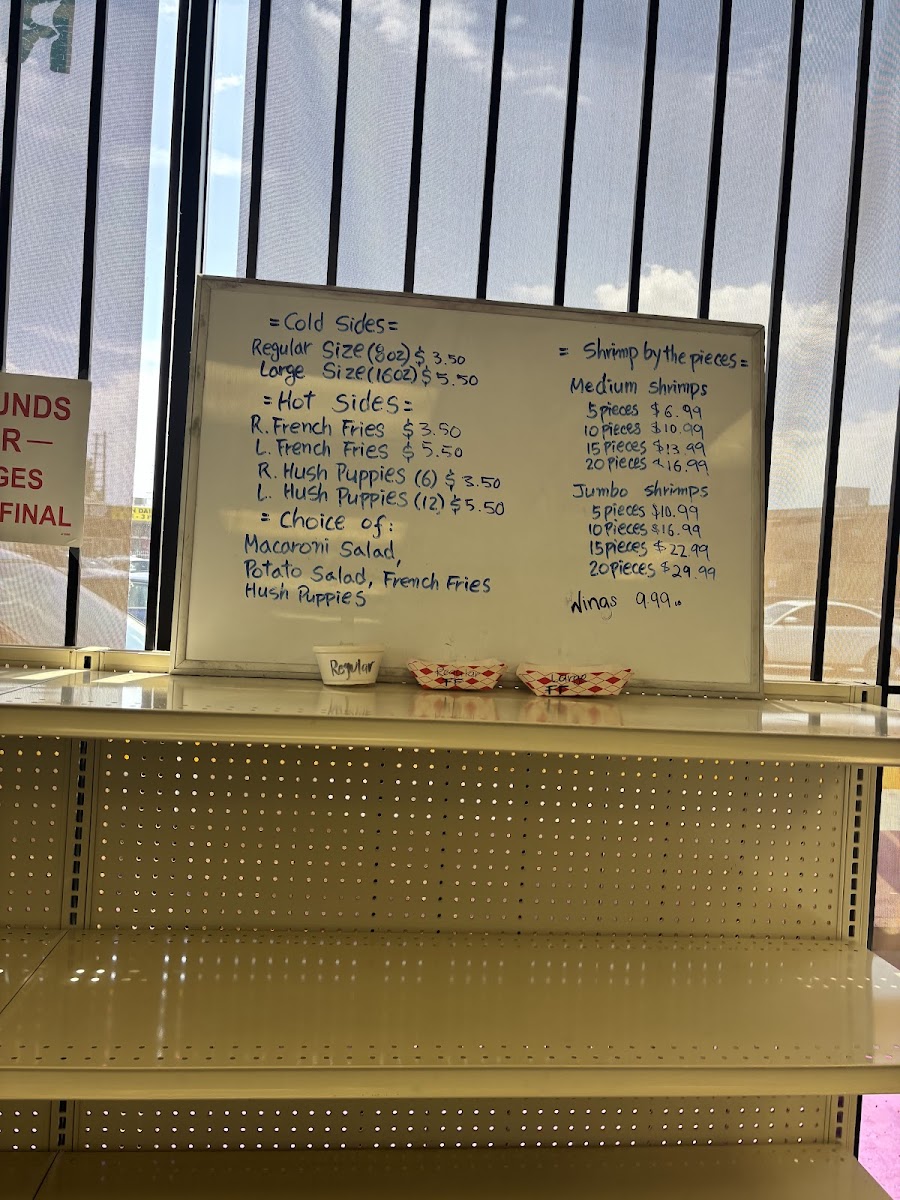 UNDS
R—
GES
FINAL
= Cold Sides=
Regular Size (8oz) $ 3.50
Large Size (16oz) $ 5.50
= Hot Sides=
R. French Fries $3.50
L. French Fries $ 5.50
R. Hush Puppies (6) $ 3.50
L. Hush Puppies (12) $5.50
= Choice of:
Macaroni Salad,
Potato Salad, French Fries
Hush Puppies
= Shrimp by the pieces=
Medium shrimps
5 pieces $6.99
10 pieces $10.99
15 pieces $13.99
20 pieces $16.99
Jumbo shrimps
5 pieces $10.99
10 pieces $16.99
15 pieces $22.99
20 pieces $29.99
Wings 9.99
Regular
Regular
FF
Large
FF